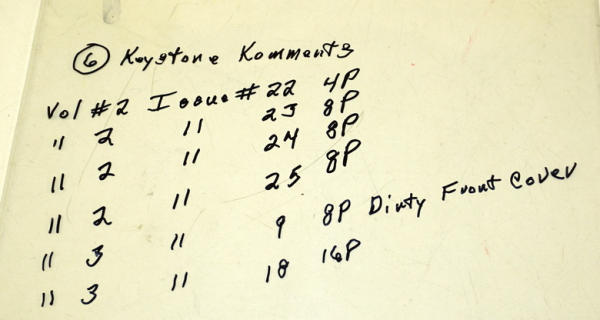 6 Keystone Komments
Vol #2 Issue #22 4P
" 2 " 23 8P
" 2 " 24 8P
" 2 " 25 8P
" 3 " 9 8P Dirty Front Cover
" 3 " 18 16P